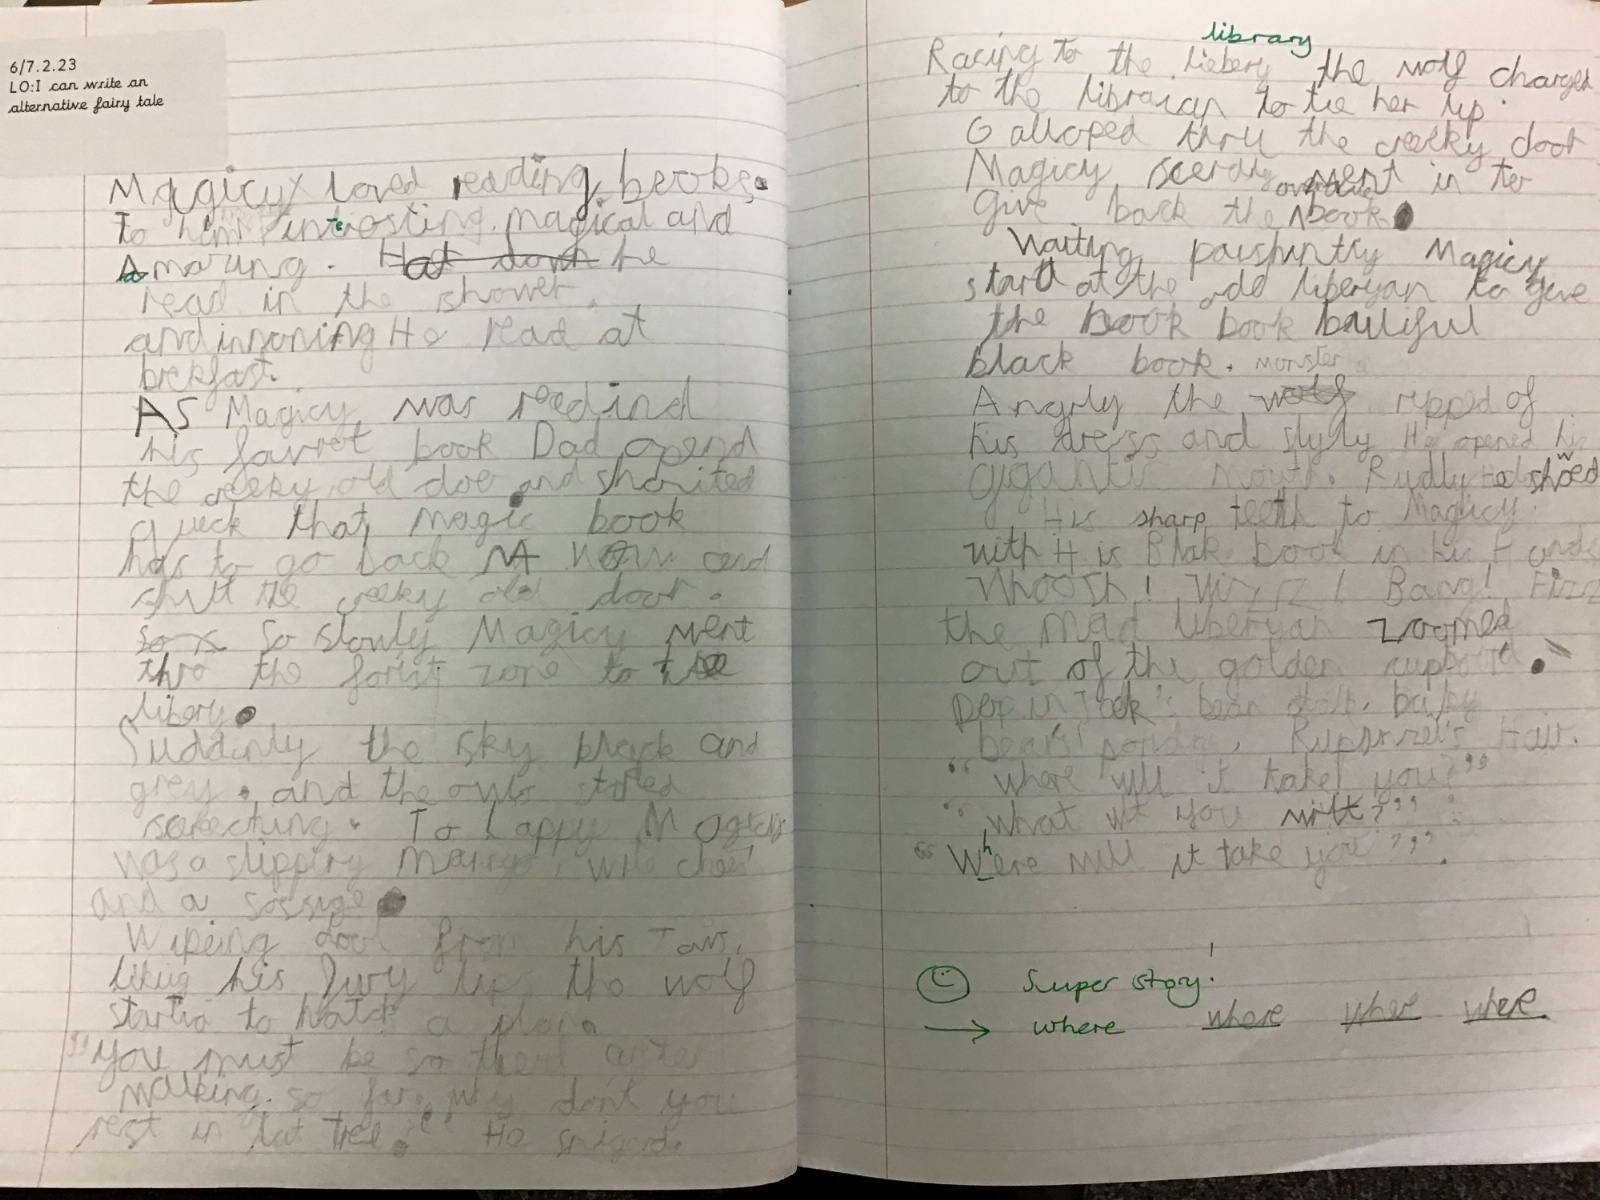 6/7.2.23
LO:I can write an
alternative fairy tale
Magicy loved reading books.
to him introsting. magical and
Amazing. Hat donh he
read in the shower.
and in He read at
brekfast.
AS Magicy was readind
his favret book Dad opend
the creeky old doe and shouted
queck that magic book
has to go back now and
shut the creeky old door.
so So slowly Magicy went
thro the forist zone to the
libery.
Suddinly the sky black and
grey. and the owls started
screeching. To happy Magicy
was a slippiry with
and a sossige.
Wipeing from his Jaws,
liking his Jucy lips the wolf
started to hatch a plan.
"you must be so after
walking. so far. why don't you
rest in tat tree." He snigerd.
library
Racing to the liebery the wolf charged
to the libraian to tie her up.
Galloped thru the creeky door
Magicy went in to
overdue
Give back the book.
Waiting paishintry Magicy
stard at the odd liberyan to give
the book book bautiful
black book.
monster
Angrly the wolf ripped of
his dress and slyly He opened his
gigantic mouth. Rudly showed
His sharp teeth to Magicy.
with His Blak book in his Hands
Whoosh! Wizzz! Bang! Fizz
the mad liberyan zoomed
out of the golden cupboard.
pop in Jack's bean stalk. baby
bears' Hair.
"where will it take you?"
"What wit you"
"Where will it take you?".
Super story!
→ where where where where